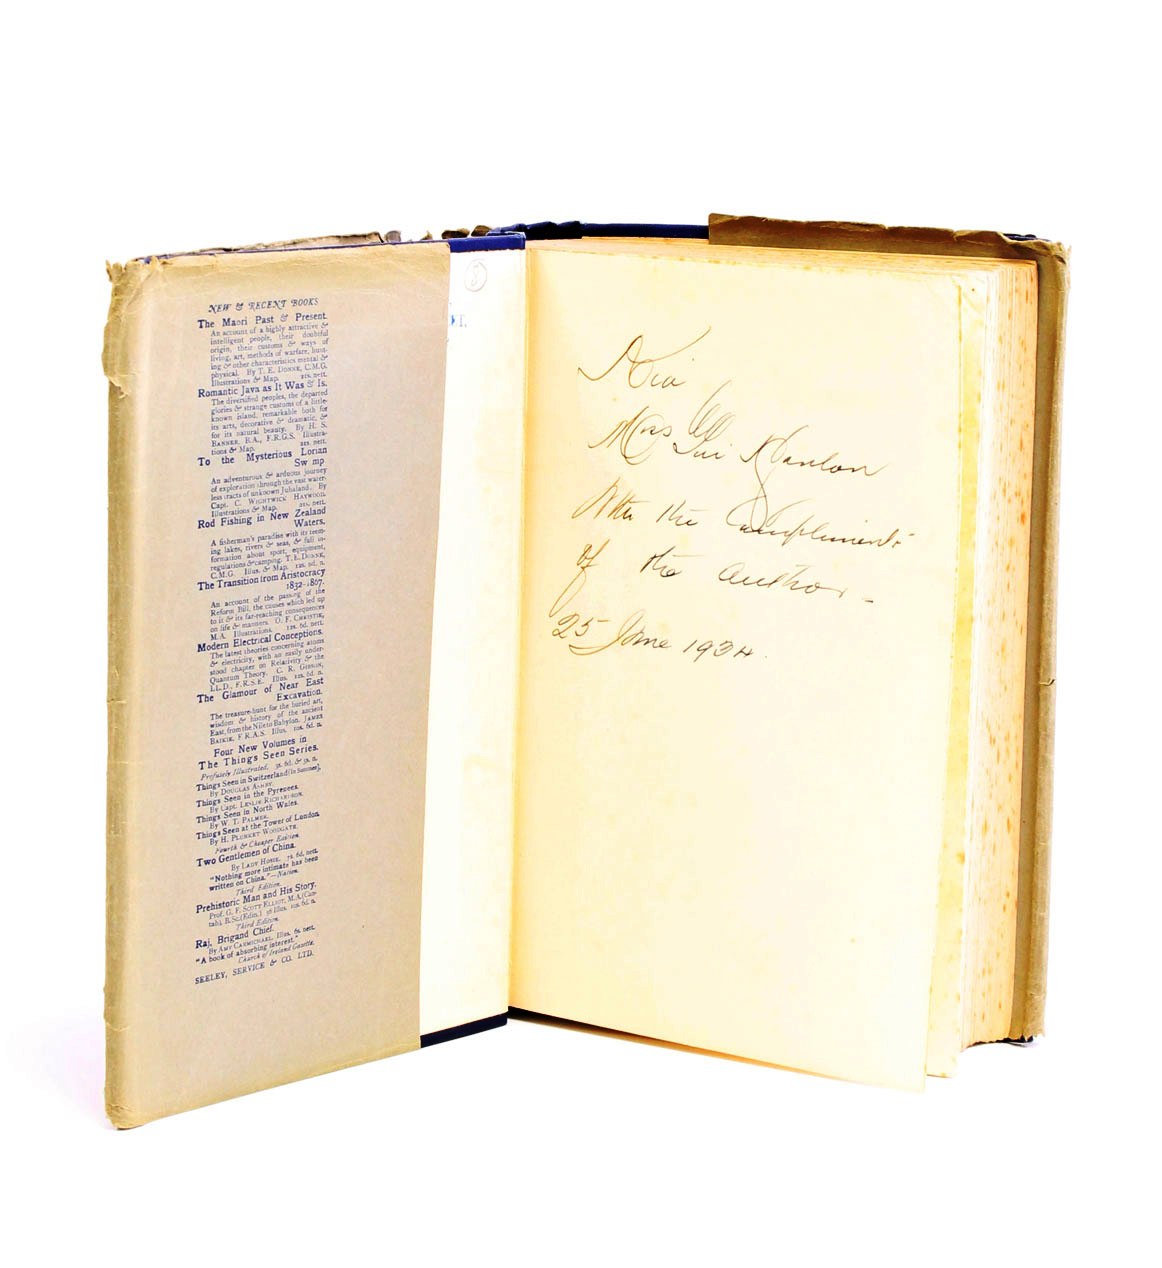 NEW & RECENT BOOKS
The Maori Past & Present.
An account of a highly attractive &
intelligent people, their doubtful
origin, their customs & ways of
living, art, methods of warfare, hunt-
ing & other characteristics mental &
physical. By T. E. DONNE, C.M.G.
Illustrations & Map. 21s. nett.
Romantic Java as It Was & Is.
The diversified peoples, the departed
glories & strange customs of a little-
known island, remarkable both for
its arts, decorative & dramatic, &
for its natural beauty. By H. S.
BANNER, B.A., F.R.G.S. Illustra-
tions & Map. 21s. nett.
To the Mysterious Lorian
Swamp
An adventurous & arduous journey
of exploration through the vast water-
less tracts of unknown Jubaland. By
Capt. C. WIGHTWICK HAYWOOD.
Illustrations & Map. 21s. nett.
Rod Fishing in New Zealand
Waters.
A fisherman's paradise with its teem-
ing lakes, rivers & seas, & full in-
formation about sport, equipment,
regulations & camping. T. E. DONNE,
C.M.G. Illus. & Map. 12s. 6d. n.
The Transition from Aristocracy
1832-1867.
An account of the passing of the
Reform Bill, the causes which led up
to it & its far-reaching consequences
on life & manners. O. F. CHRISTIE,
M.A. Illustrations. 12s. 6d. nett.
Modern Electrical Conceptions.
The latest theories concerning atoms
& electricity, with an easily under-
stood chapter on Relativity & the
Quantum Theory. C. R. GIBSON,
LL.D., F.R.S.E. Illus. 12s. 6d. n.
The Glamour of Near East
Excavation.
The treasure-hunt for the buried art,
wisdom & history of the ancient
East, from the Nile to Babylon. JAMES
BAIKIE, F.R.A.S. Illus. 10s. 6d. n.
Four New Volumes in
The Things Seen Series.
Profusely Illustrated. 3s. 6d. & 5s. n.
Things Seen in Switzerland (in Summer),
By DOUGLAS ASHBY.
Things Seen in the Pyrenees.
By Capt. LESLIE RICHARDSON.
Things Seen in North Wales.
By W. T. PALMER.
Things Seen at the Tower of London.
By H. PLUNKET WOODGATE.
Fourth & Cheaper Edition.
Two Gentlemen of China.
By LADY HOSIE. 7s. 6d. nett.
"Nothing more intimate has been
written on China."—Nation.
Third Edition.
Prehistoric Man and His Story.
Prof. G. F. SCOTT ELLIOT, M.A. (Can-
tab), B.Sc. (Edin.) 56 Illus. 10s. 6d. n.
Third Edition.
Raj, Brigand Chief.
By AMY CARMICHAEL. Illus. 6s. nett.
"A book of absorbing interest."
Church of Ireland Gazette.
SEELEY, SERVICE & CO. LTD.
8
Kia
Mrs Tui Hanlon
With the Compliments
of the author -
25 June 1934.